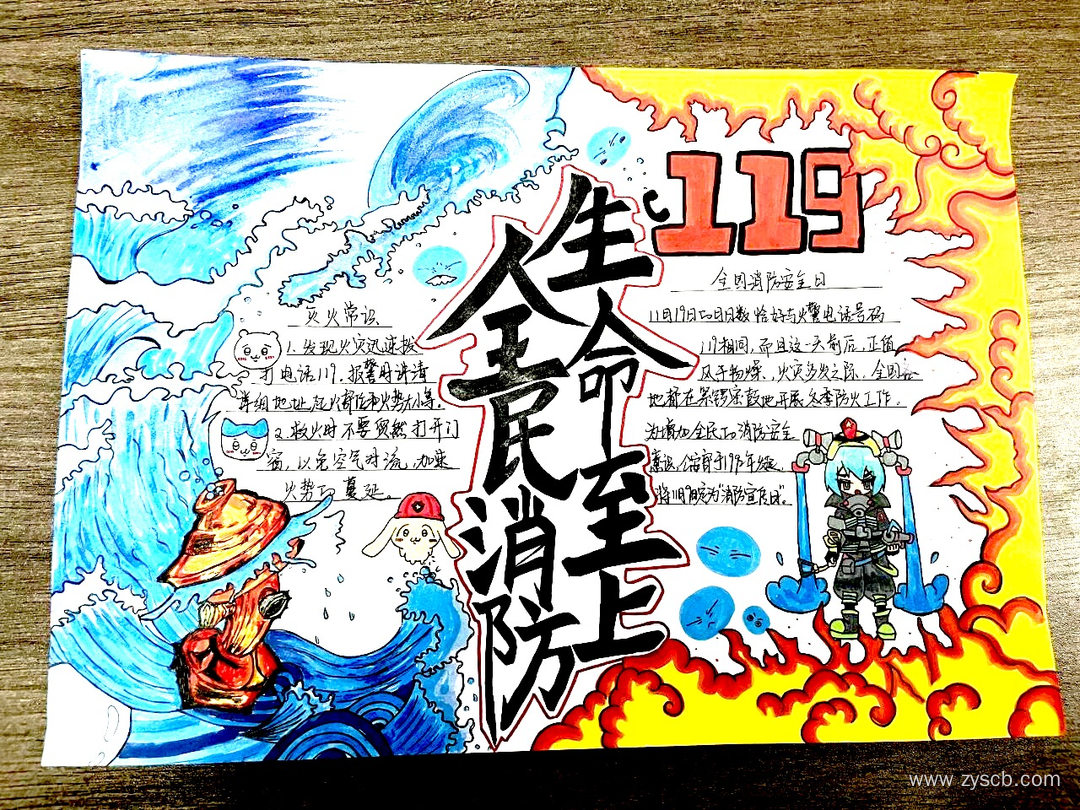 119
生命至上
全民消防
灭火常识
1.发现火灾迅速拨
打电话119,报警时讲清
详细地址、起火部位和火势大小等。
2.救火时不要贸然打开门
窗,以免空气对流,加速
火势的蔓延。
全国消防安全日
11月19日的月日数恰好与火警电话号码
119相同,而且这一天前后,正值
风干物燥、火灾多发之际,全国各
地都在紧锣密鼓地开展冬季防火工作。
为增加全民的消防安全
意识,
将11月9日定为"消防宣传日"。
www.zyscb.com